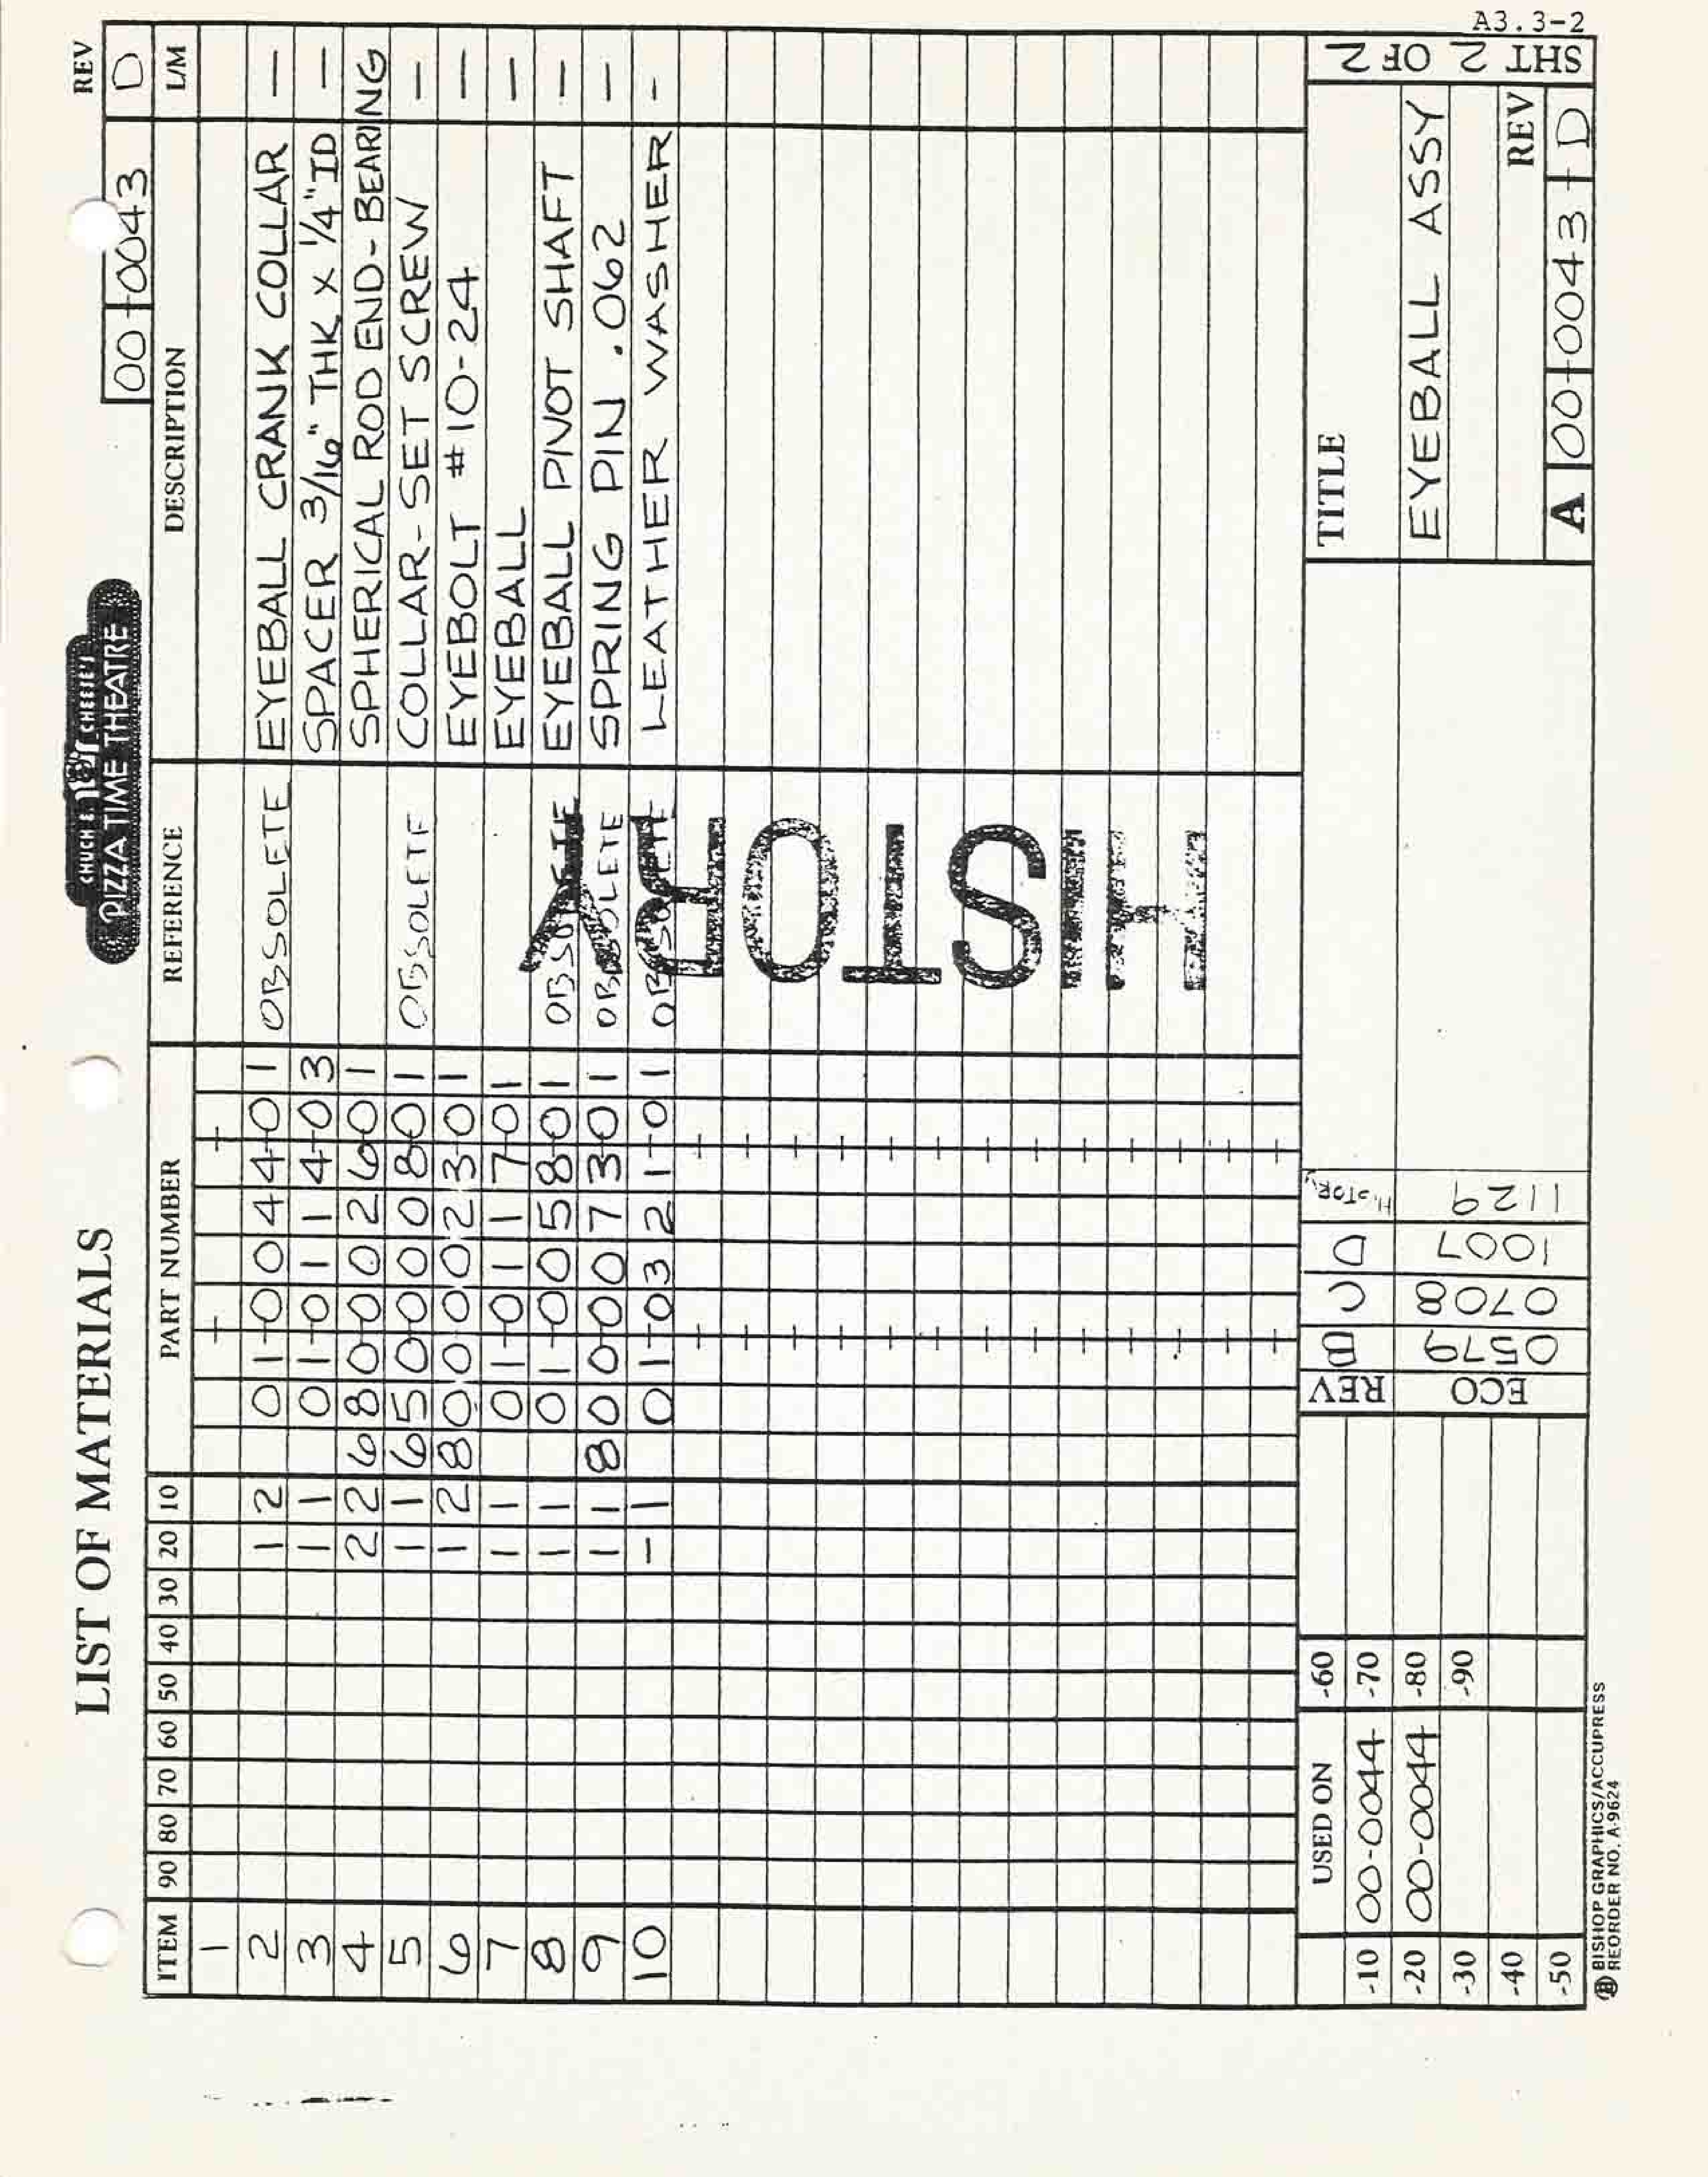 A3.3-2
LIST OF MATERIALS
CHUCK E. CHEESE'S
PIZZA TIME THEATRE
REV
00-0043 D
ITEM 90 80 70 60 50 40 30 20 10 PART NUMBER REFERENCE DESCRIPTION L/M
1
2 1 2 01-0044-01 OBSOLETE EYEBALL CRANK COLLAR —
3 1 1 01-0114-03 SPACER 3/16" THK x 1/4" ID —
4 2 2 680-0026-01 SPHERICAL ROD END-BEARING
5 1 1 650-0008-01 OBSOLETE COLLAR-SET SCREW —
6 1 2 800-0023-01 EYEBOLT #10-24 —
7 1 1 01-0117-01 EYEBALL —
8 1 1 01-0058-01 OBSOLETE EYEBALL PIVOT SHAFT —
9 1 1 800-0073-01 OBSOLETE SPRING PIN .062 —
10 — 1 01-0321-01 OBSOLETE LEATHER WASHER -
HISTORY
USED ON
-10 00-0044 -60
-20 00-0044 -70
-30 -80
-40 -90
-50
REV B C D HISTORY
ECO 0579 0708 1007 1129
TITLE
EYEBALL ASSY
SHT 2 OF 2
REV
A 00-0043 D
BISHOP GRAPHICS/ACCUPRESS
REORDER NO. A-9624